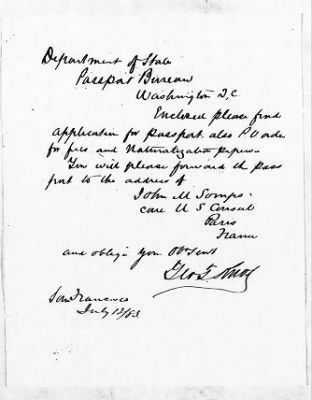 Department of State
Passport Bureau
Washington D.C
Enclosed please find
application for passport also P O order
for fees and Naturalization papers.
You will please forward the pass
port to the address of
John M
care U S Consul
Paris
France
and oblige your Obt Svnt
Geo F.
San Francisco
July 12/83